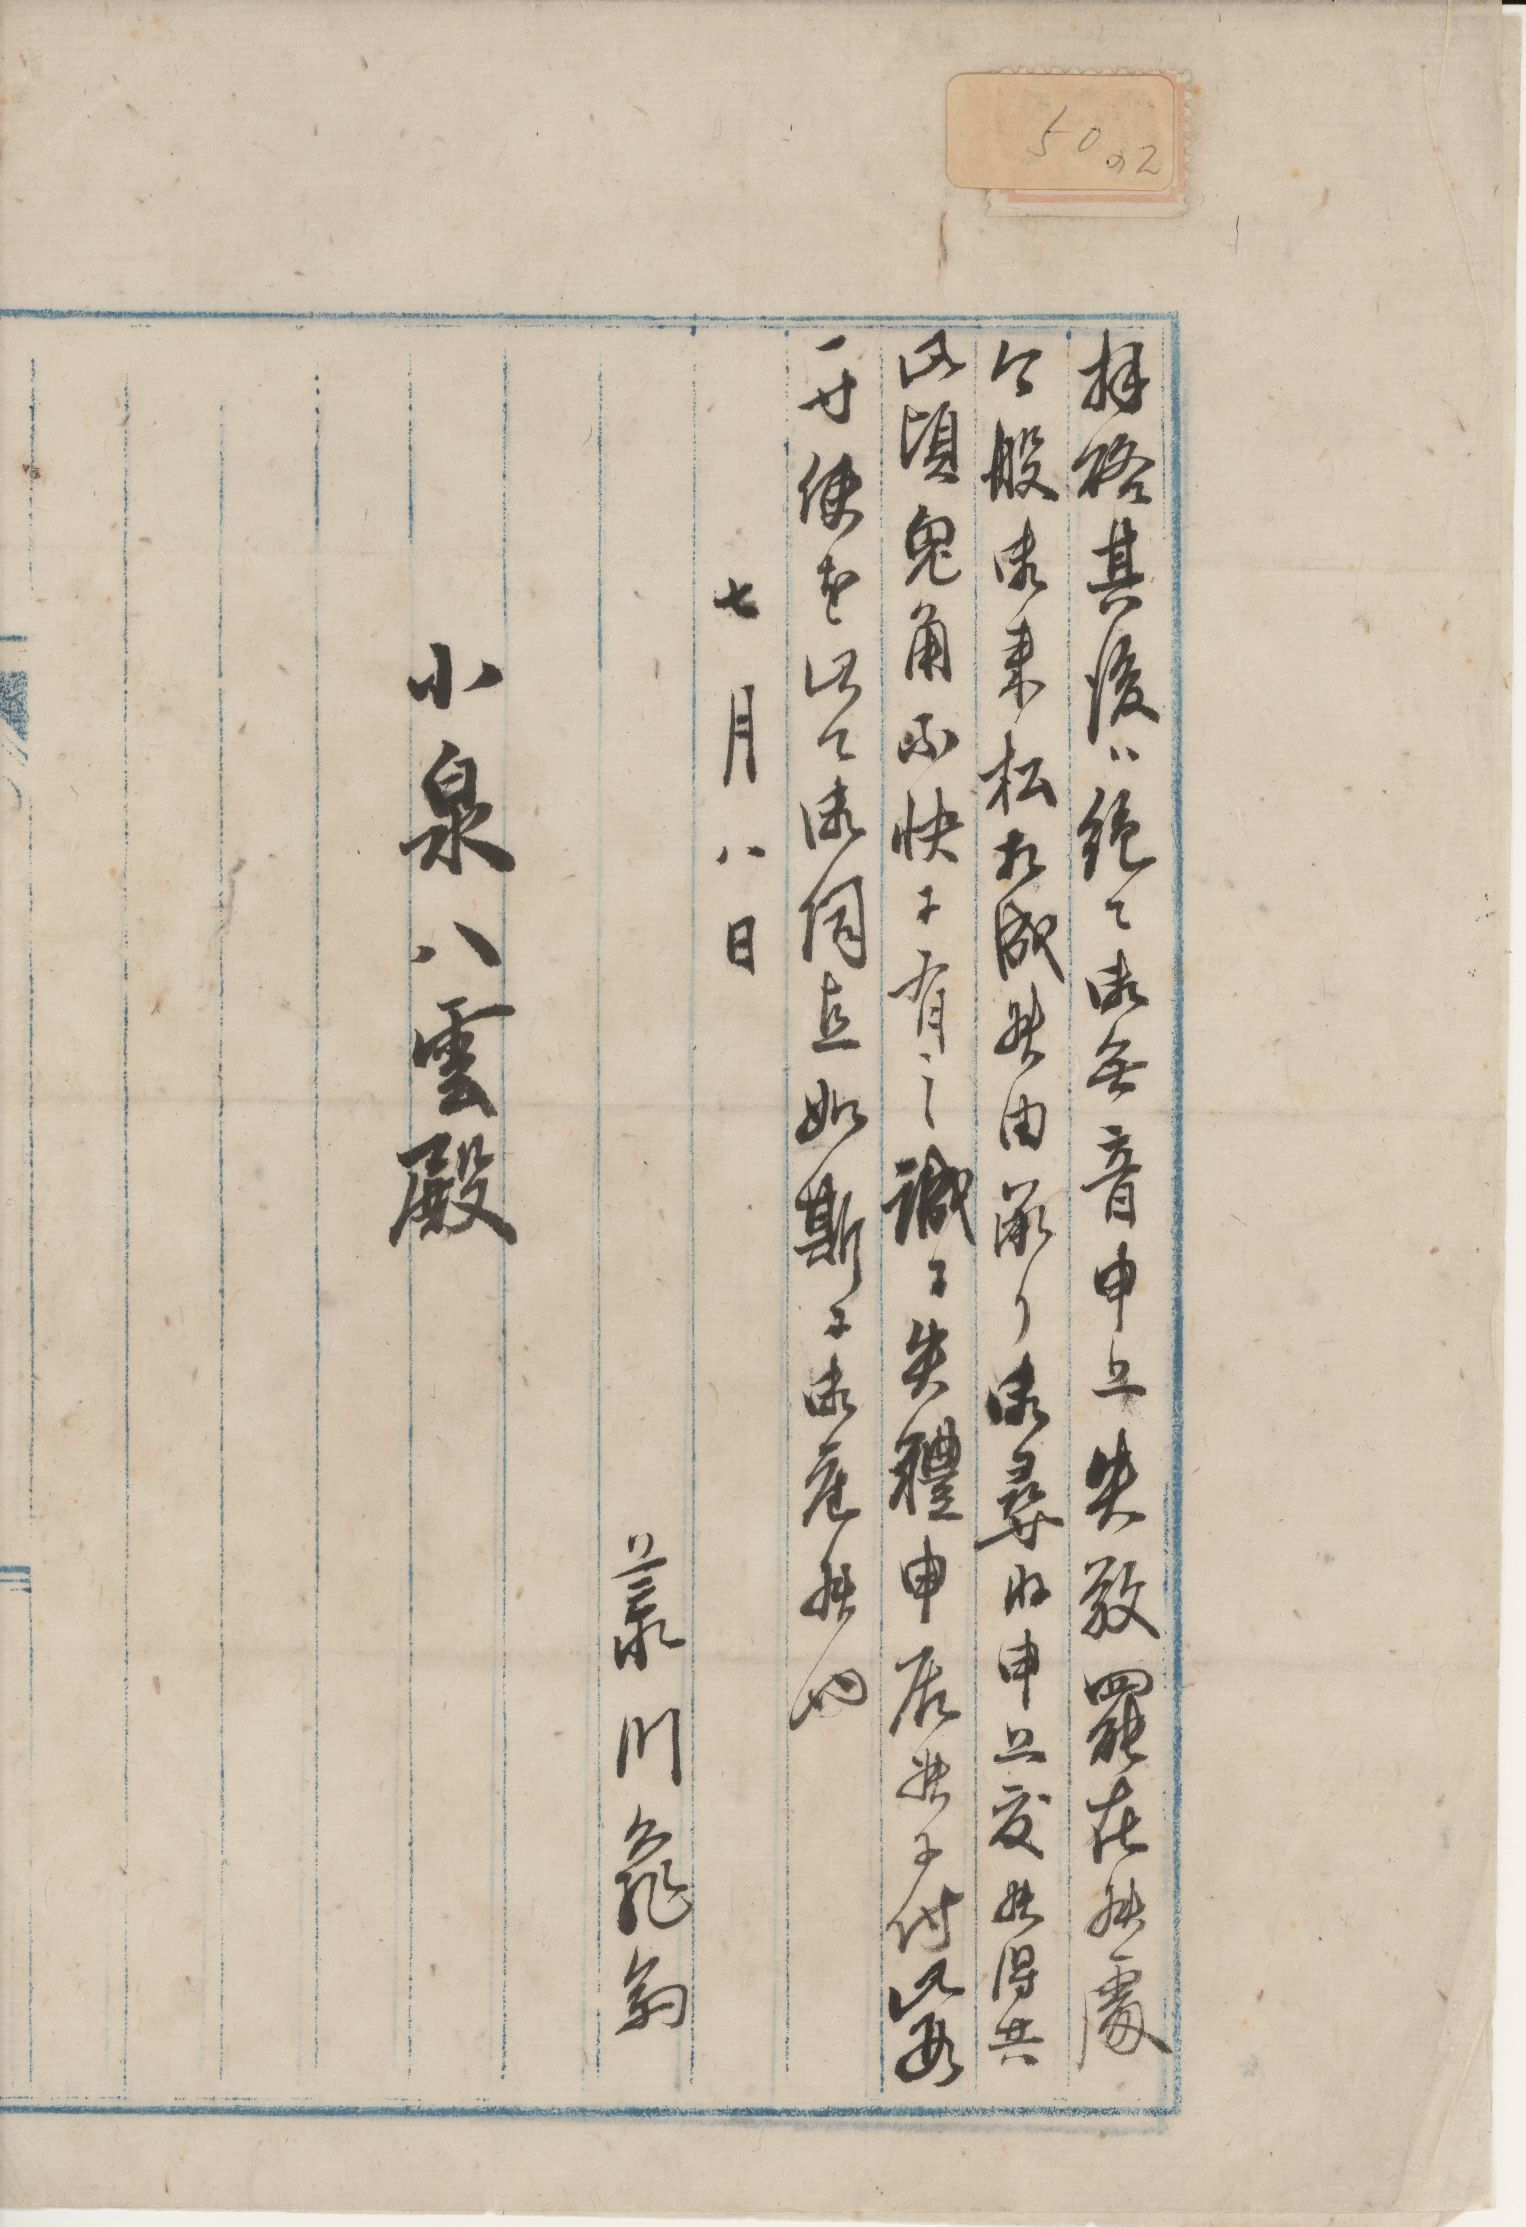 50の2
拝啓其後ハ絶て御無音申上失敬罷在候處
今般御来松相成候由承り御尋ね申上度候得共
此頃兎角不快ニ有之誠ニ失禮申居候ニ付此段
一寸使を以て御伺且如斯ニ御座候也
七月八日
川龜翁
小泉八雲殿